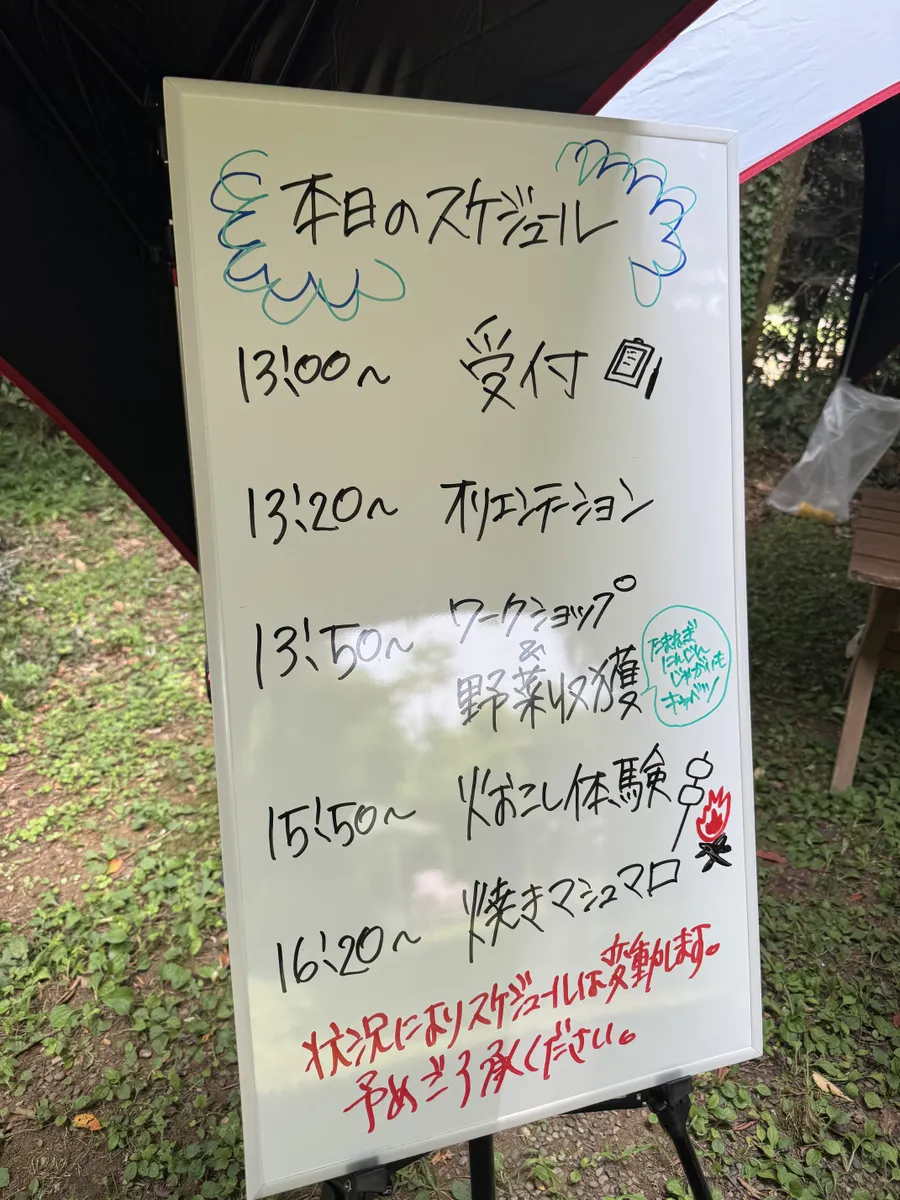 本日のスケジュール
13:00~ 受付
13:20~ オリエンテーション
13:50~ ワークショップ
&
野菜収獲
たまねぎ
にんじん
じゃがいも
キャベツ
15:50~ 火おこし体験
16:20~ 焼きマシュマロ
状況によりスケジュールは変動します。
予めご了承ください。